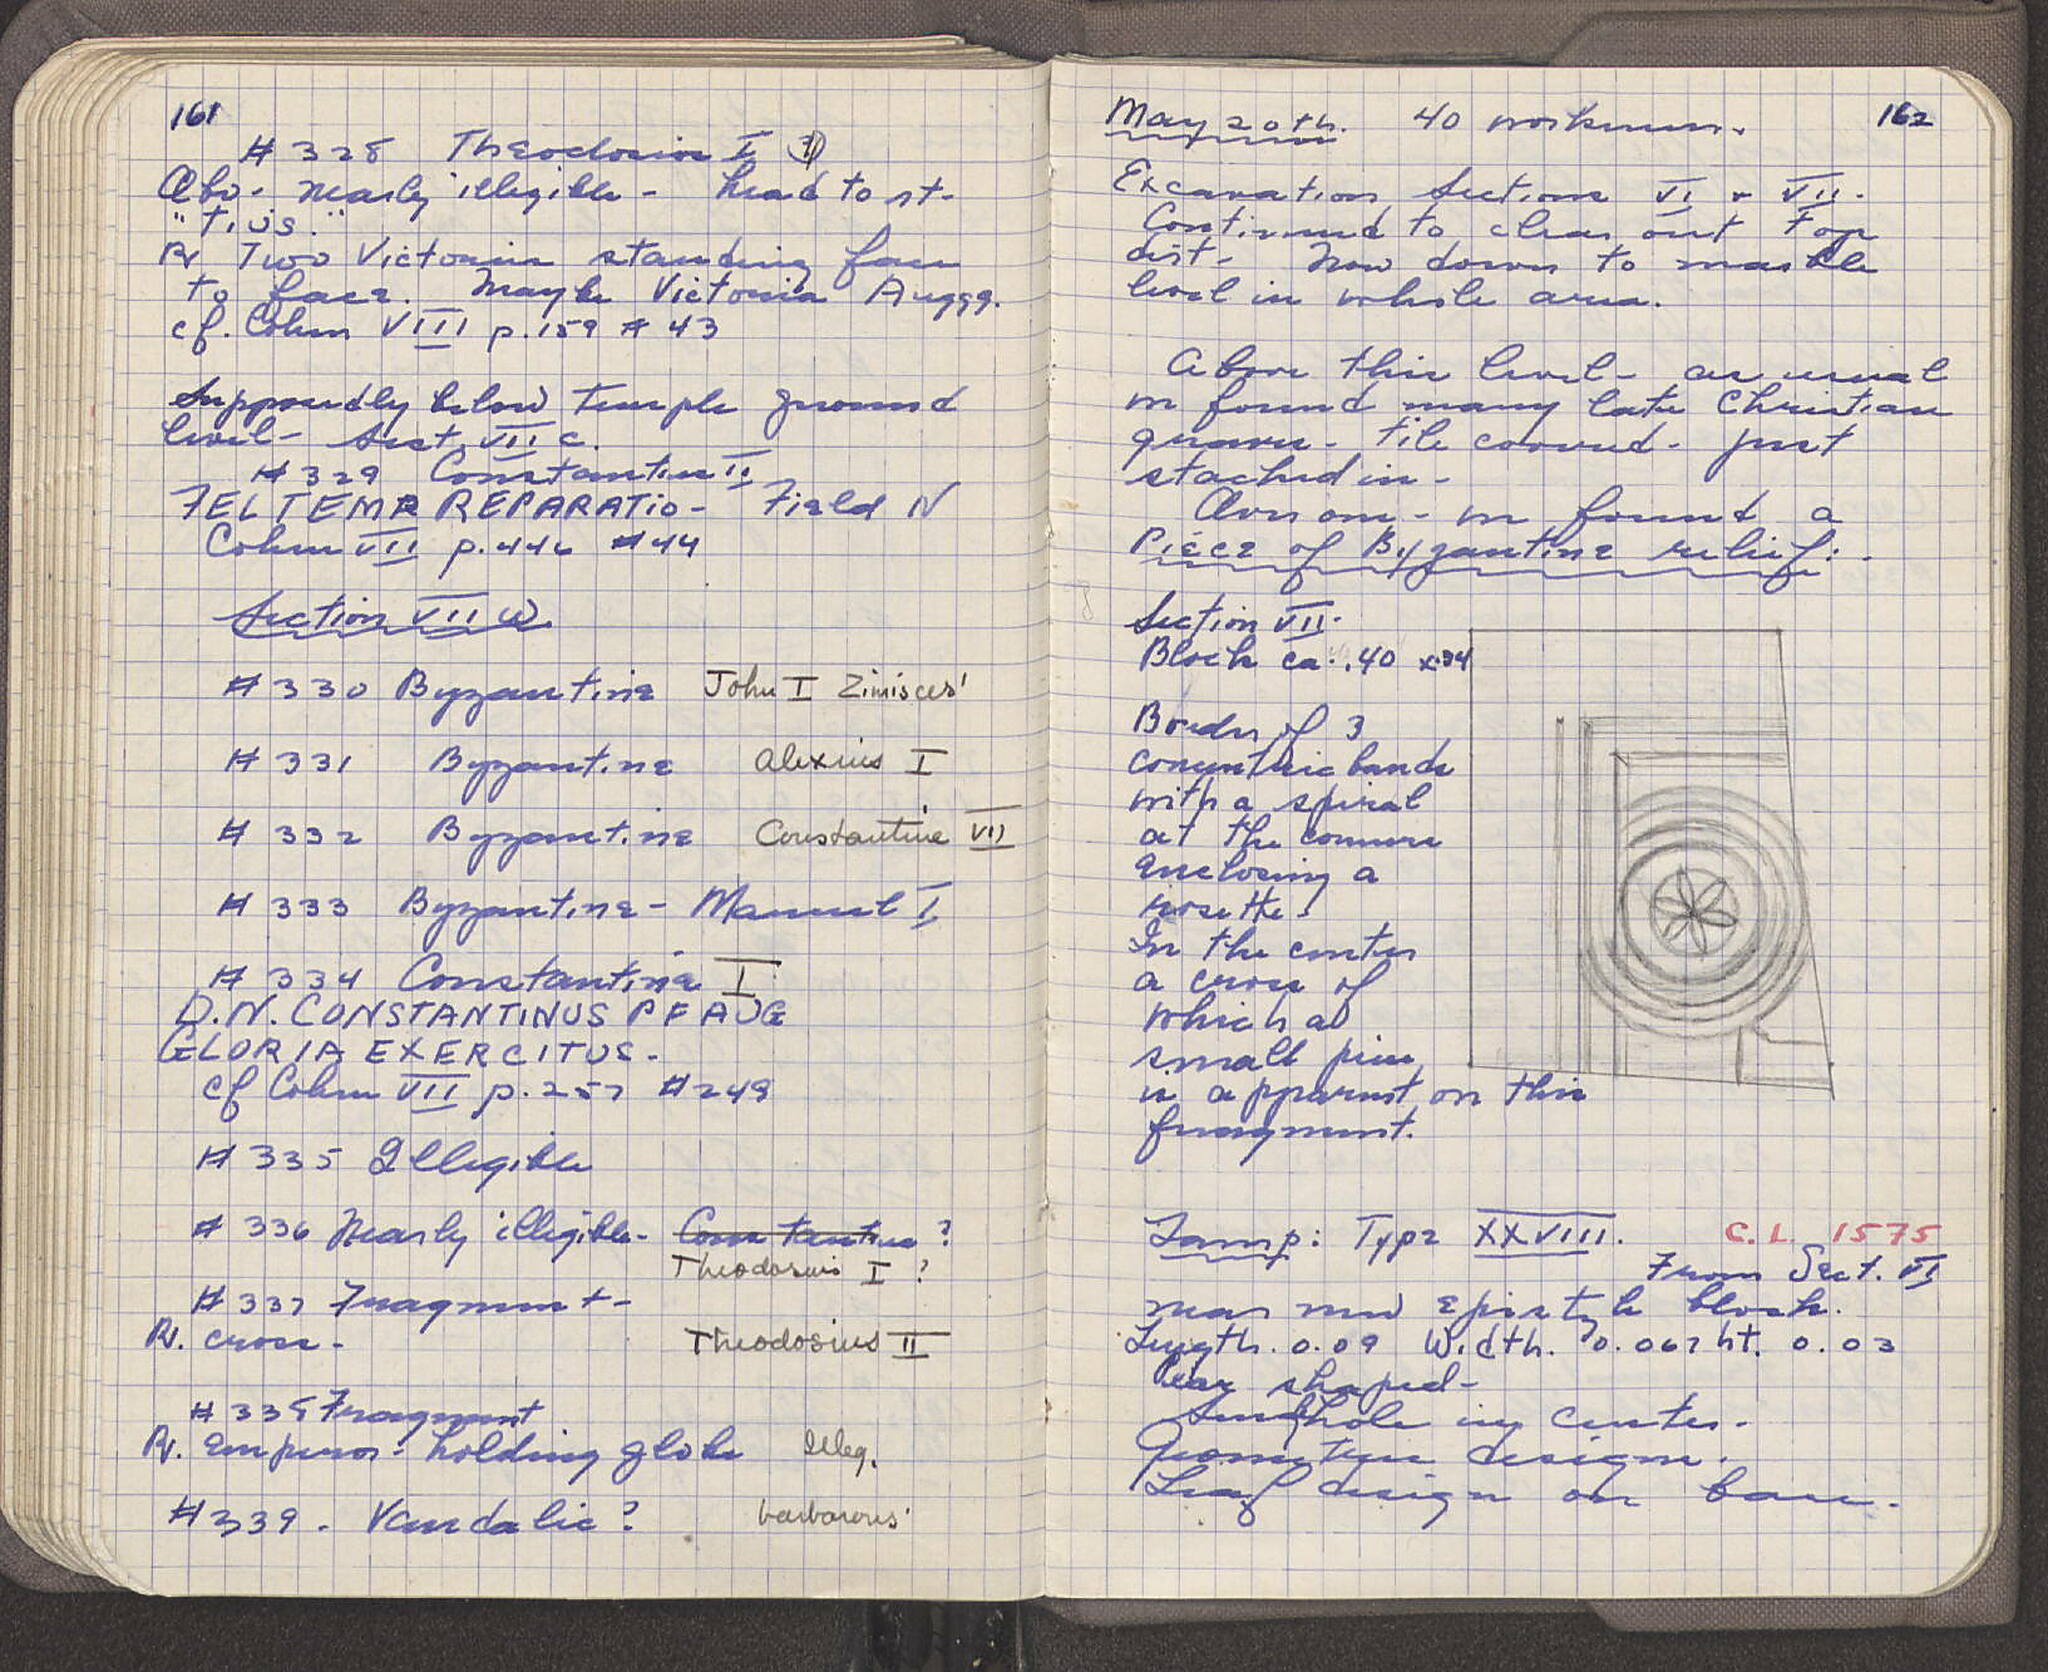 161
# 328 Theodosius I ?
Obv. Nearly illegible - head to rt-
"TIUS."
Rv Two Victories standing face
to face. Maybe Victoria Auggg.
cf. Cohen VIII p. 159 # 43
Supposedly below temple ground
level - Sect. VII c.
# 329 Constantius II
FEL TEMP REPARATIO - Field N
Cohen VII p. 446 # 44
Section VII W
# 330 Byzantine John I Zimisces'
# 331 Byzantine Alexius I
# 332 Byzantine Constantine VII
# 333 Byzantine - Manuel I
# 334 Constantine I
D.N. CONSTANTINUS P F AUG
GLORIA EXERCITUS.
cf Cohen VII p. 257 # 249
# 335 Illegible
# 336 Nearly illegible - Constantius ?
Theodosius I ?
# 337 Fragment -
Rv. cross - Theodosius II
# 338 Fragment
Rv. Emperor holding globe Illeg.
# 339 - Vandalic? barbarous'
162
May 20th. 40 workmen.
Excavation Sections VI & VII.
Continued to clear out top
dirt - Now down to marble
level in whole area.
Above this level - as usual
we found many late Christian
graves - tile covered - just
stached in -
Over one - we found a
Piece of Byzantine relief:
Section VII.
Block ca. .40 x .34
Border of 3
concentric bands
with a spiral
at the corners
enclosing a
rosette.
In the center
a cross of
which a
small piece
is apparent on this
fragment.
Lamp: Type XXVIII. C. L. 1575
From Sect. VI
near new epistyle block.
Length. 0.09 Width. 0.067 ht. 0.03
Pear shaped -
hole in center.
Geometric design.
Leaf design on base.